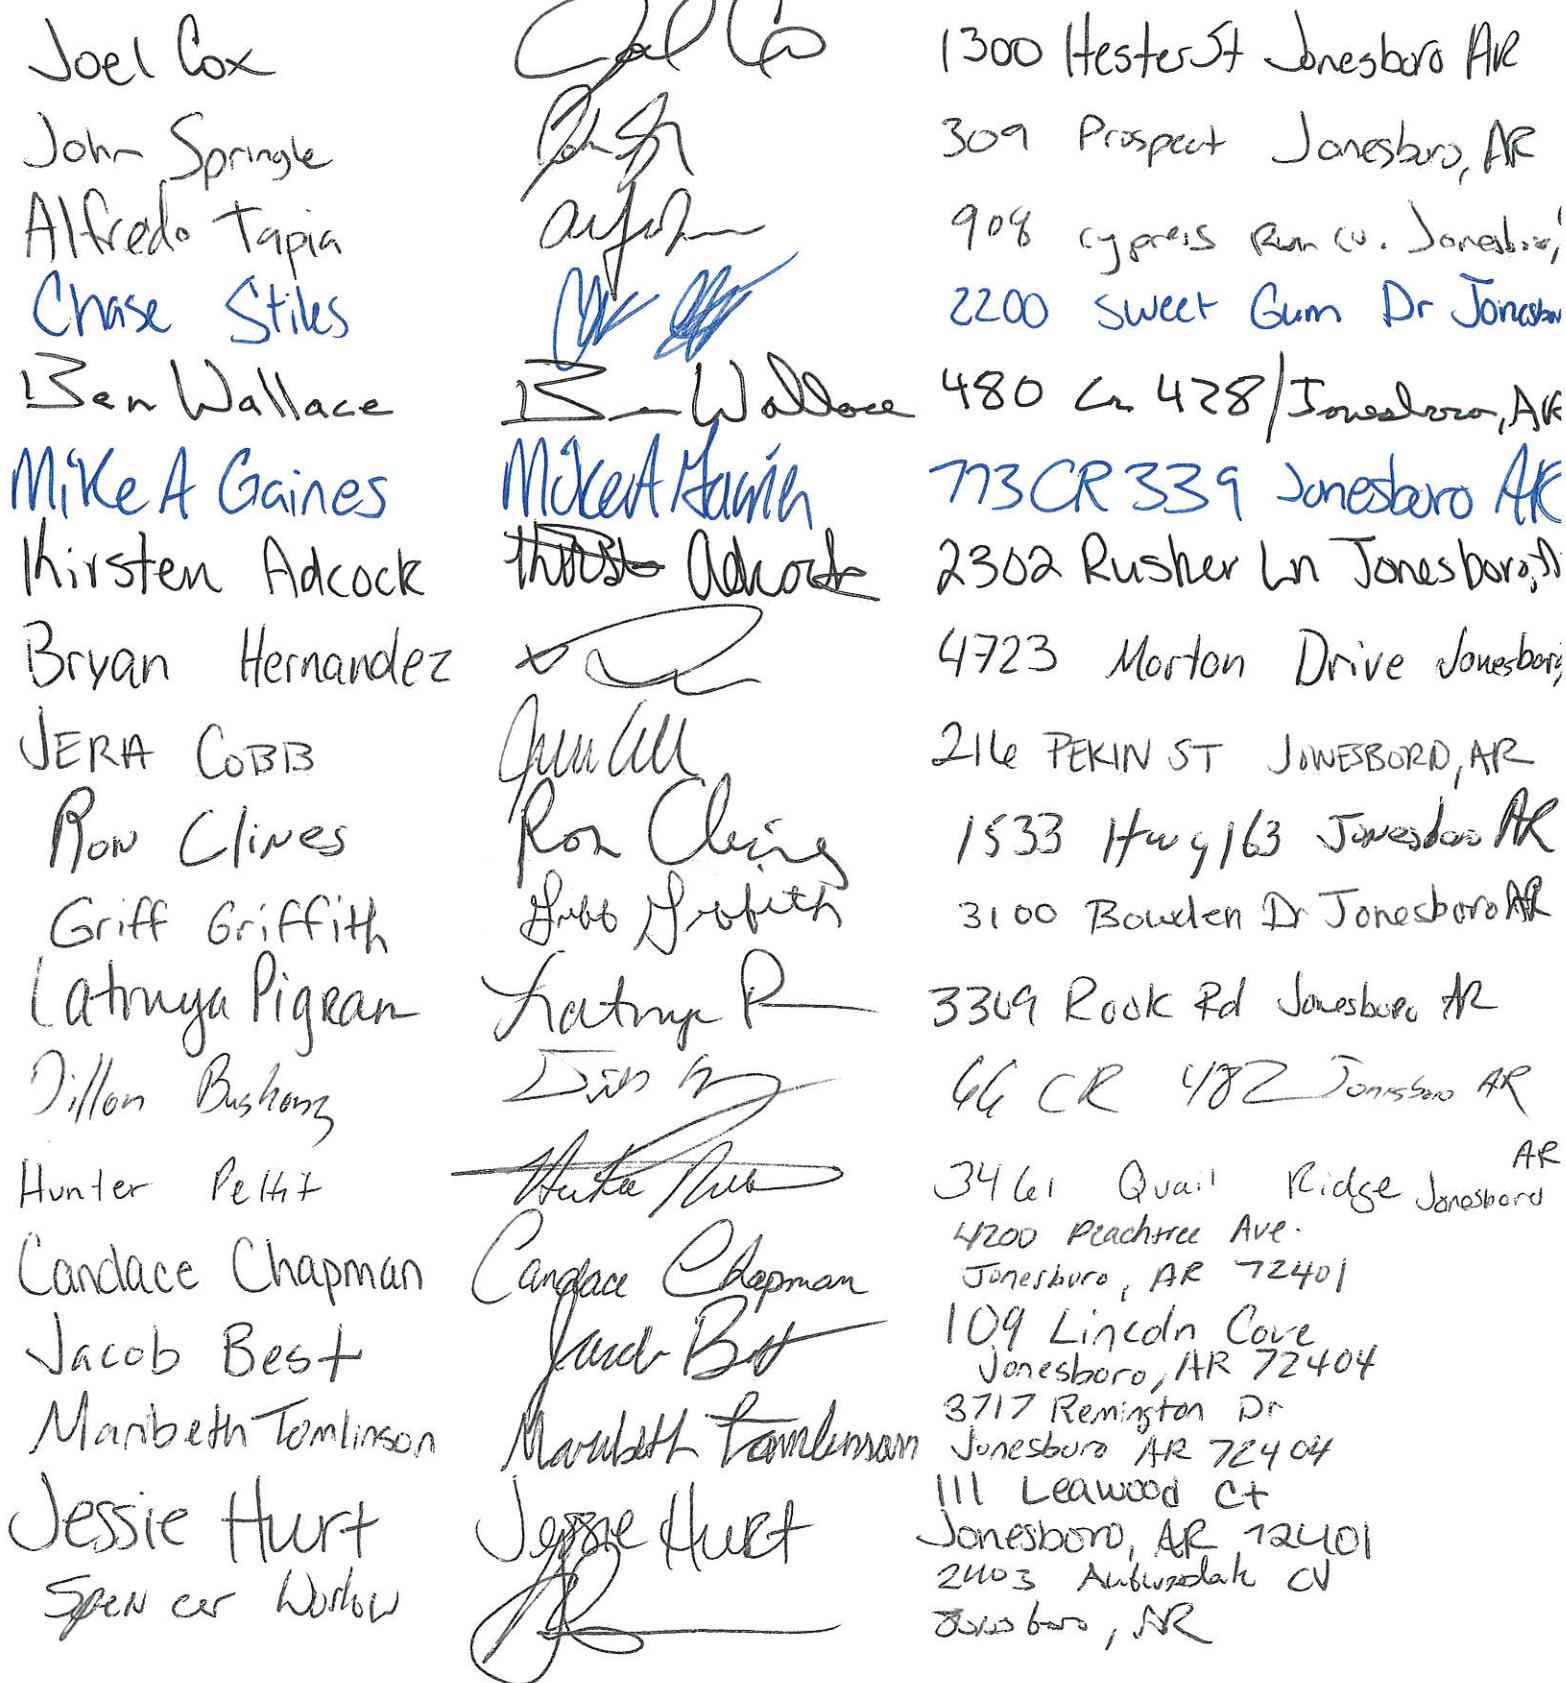 Joel Cox Joel Cox 1300 Hester St Jonesboro AR
John Springle 309 Prospect Jonesboro, AR
Alfredo Tapia 908 cypress Run cv. Jonesboro,
Chase Stiles 2200 Sweet Gum Dr Jonesbor
Ben Wallace Ben Wallace 480 Cr 428/Jonesboro, AR
Mike A Gaines Mike A Gaines 773 CR 339 Jonesboro AR
Kirsten Adcock Adcock 2302 Rusher Ln Jonesboro,
Bryan Hernandez 4723 Morton Drive Jonesboro,
JERA COBB 216 PEKIN ST JONESBORO, AR
Ron Clines Ron Clines 1533 Hwy 163 Jonesboro AR
Griff Griffith Griff Griffith 3100 Bowden Dr Jonesboro AR
Pigram 3369 Rook Rd Jonesboro AR
Dillon Bushong CR 482 Jonesboro AR
Hunter Pettit 3461 Quail Ridge Jonesboro AR
Candace Chapman Candace Chapman 4200 Peachtree Ave.
Jonesboro, AR 72401
Jacob Best Jacob Best 109 Lincoln Cove
Jonesboro, AR 72404
Maribeth Tomlinson Maribeth Tomlinson 3717 Remington Dr
Jonesboro AR 72404
Jessie Hurt Jessie Hurt 111 Leawood Ct
Jonesboro, AR 72401
Spencer 2403 CV
Jonesboro, AR